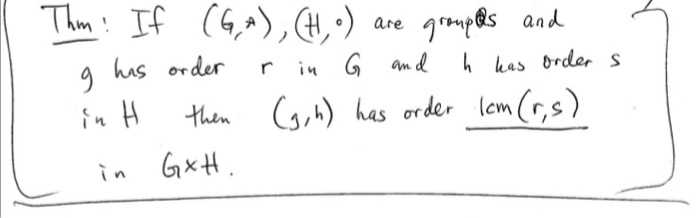 Thm: If (G,*), (H,∘) are groups and
g has order r in G and h has order s
in H then (g,h) has order lcm(r,s)
in G×H.